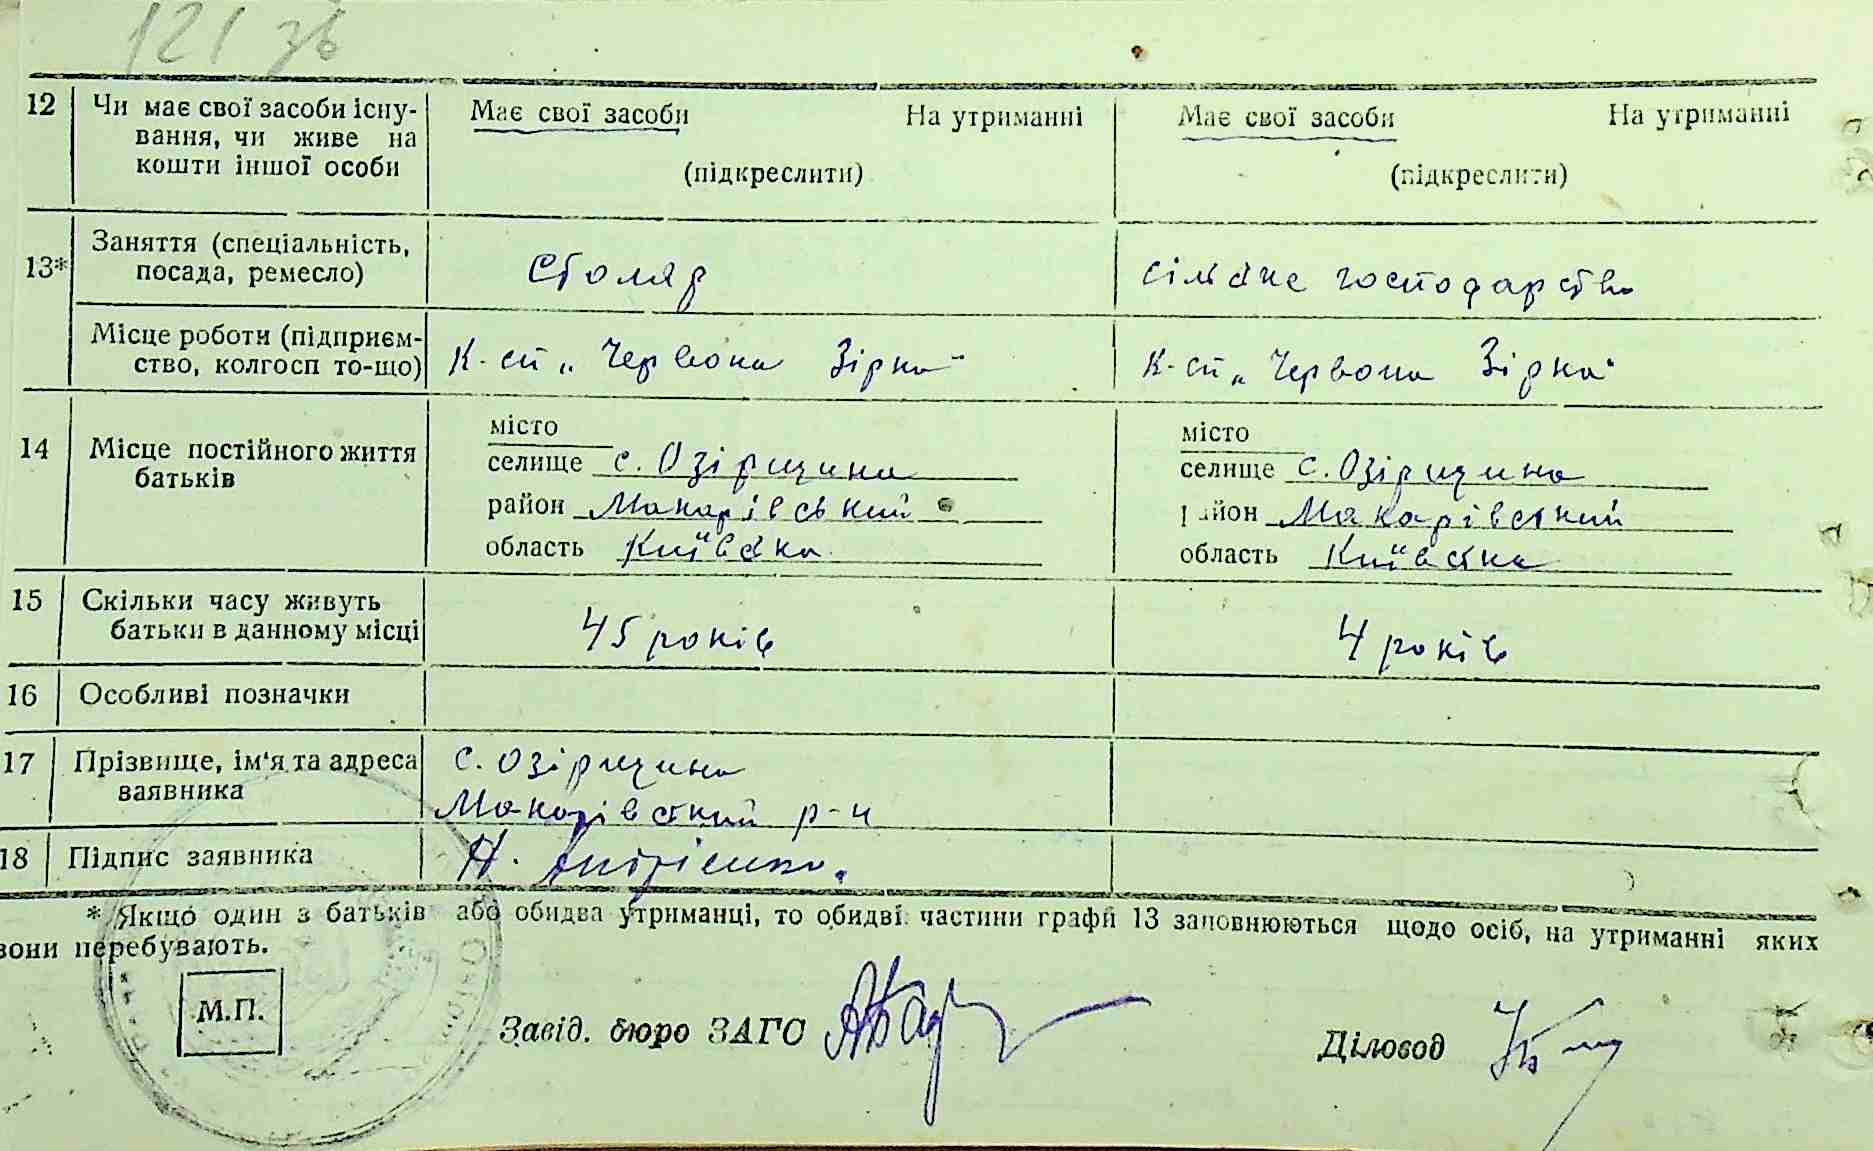 121 зв
12 Чи має свої засоби існу- Має свої засоби На утриманні Має свої засоби На утриманні
вання, чи живе на
кошти іншої особи (підкреслити) (підкреслити)
13* Заняття (спеціальність, Столяр сільське господарство
посада, ремесло)
Місце роботи (підприєм- К-сп „Червона Зірка" К-сп „Червона Зірка"
ство, колгосп то-що)
місто місто
14 Місце постійного життя селище с. Озірщина селище с. Озірщина
батьків район Макарівський район Макарівський
область Київська область Київська
15 Скільки часу живуть 45 років 4 років
батьки в данному місці
16 Особливі позначки
17 Прізвище, ім'я та адреса с. Озірщина
заявника Макарівский р-н
18 Підпис заявника Н. Андрієнко.
* Якщо один з батьків або обидва утриманці, то обидві частини графи 13 заповнюються щодо осіб, на утриманні яких
вони перебувають.
М.П.
Завід. бюро ЗАГС Діловод